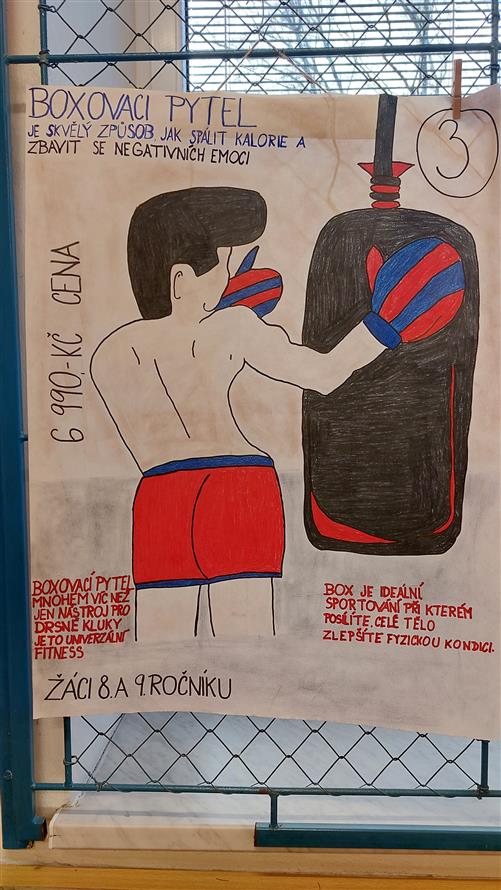 BOXOVACI PYTEL
JE SKVĚLÝ ZPŮSOB, JAK SPÁLIT KALORIE A
ZBAVIT SE NEGATIVNÍCH EMOCI
3
6 990,-KČ CENA
BOXOVACÍ PYTEL
MNOHEM VÍC NEŽ
JEN NÁSTROJ PRO
DRSNÉ KLUKY
JE TO UNIVERZÁLNÍ
FITNESS
BOX JE IDEÁLNÍ
SPORTOVÁNÍ PŘI KTERÉM
POSÍLÍTE CELÉ TĚLO
ZLEPŠÍTE FYZICKOU KONDICI.
ŽÁCI 8. A 9. ROČNÍKU